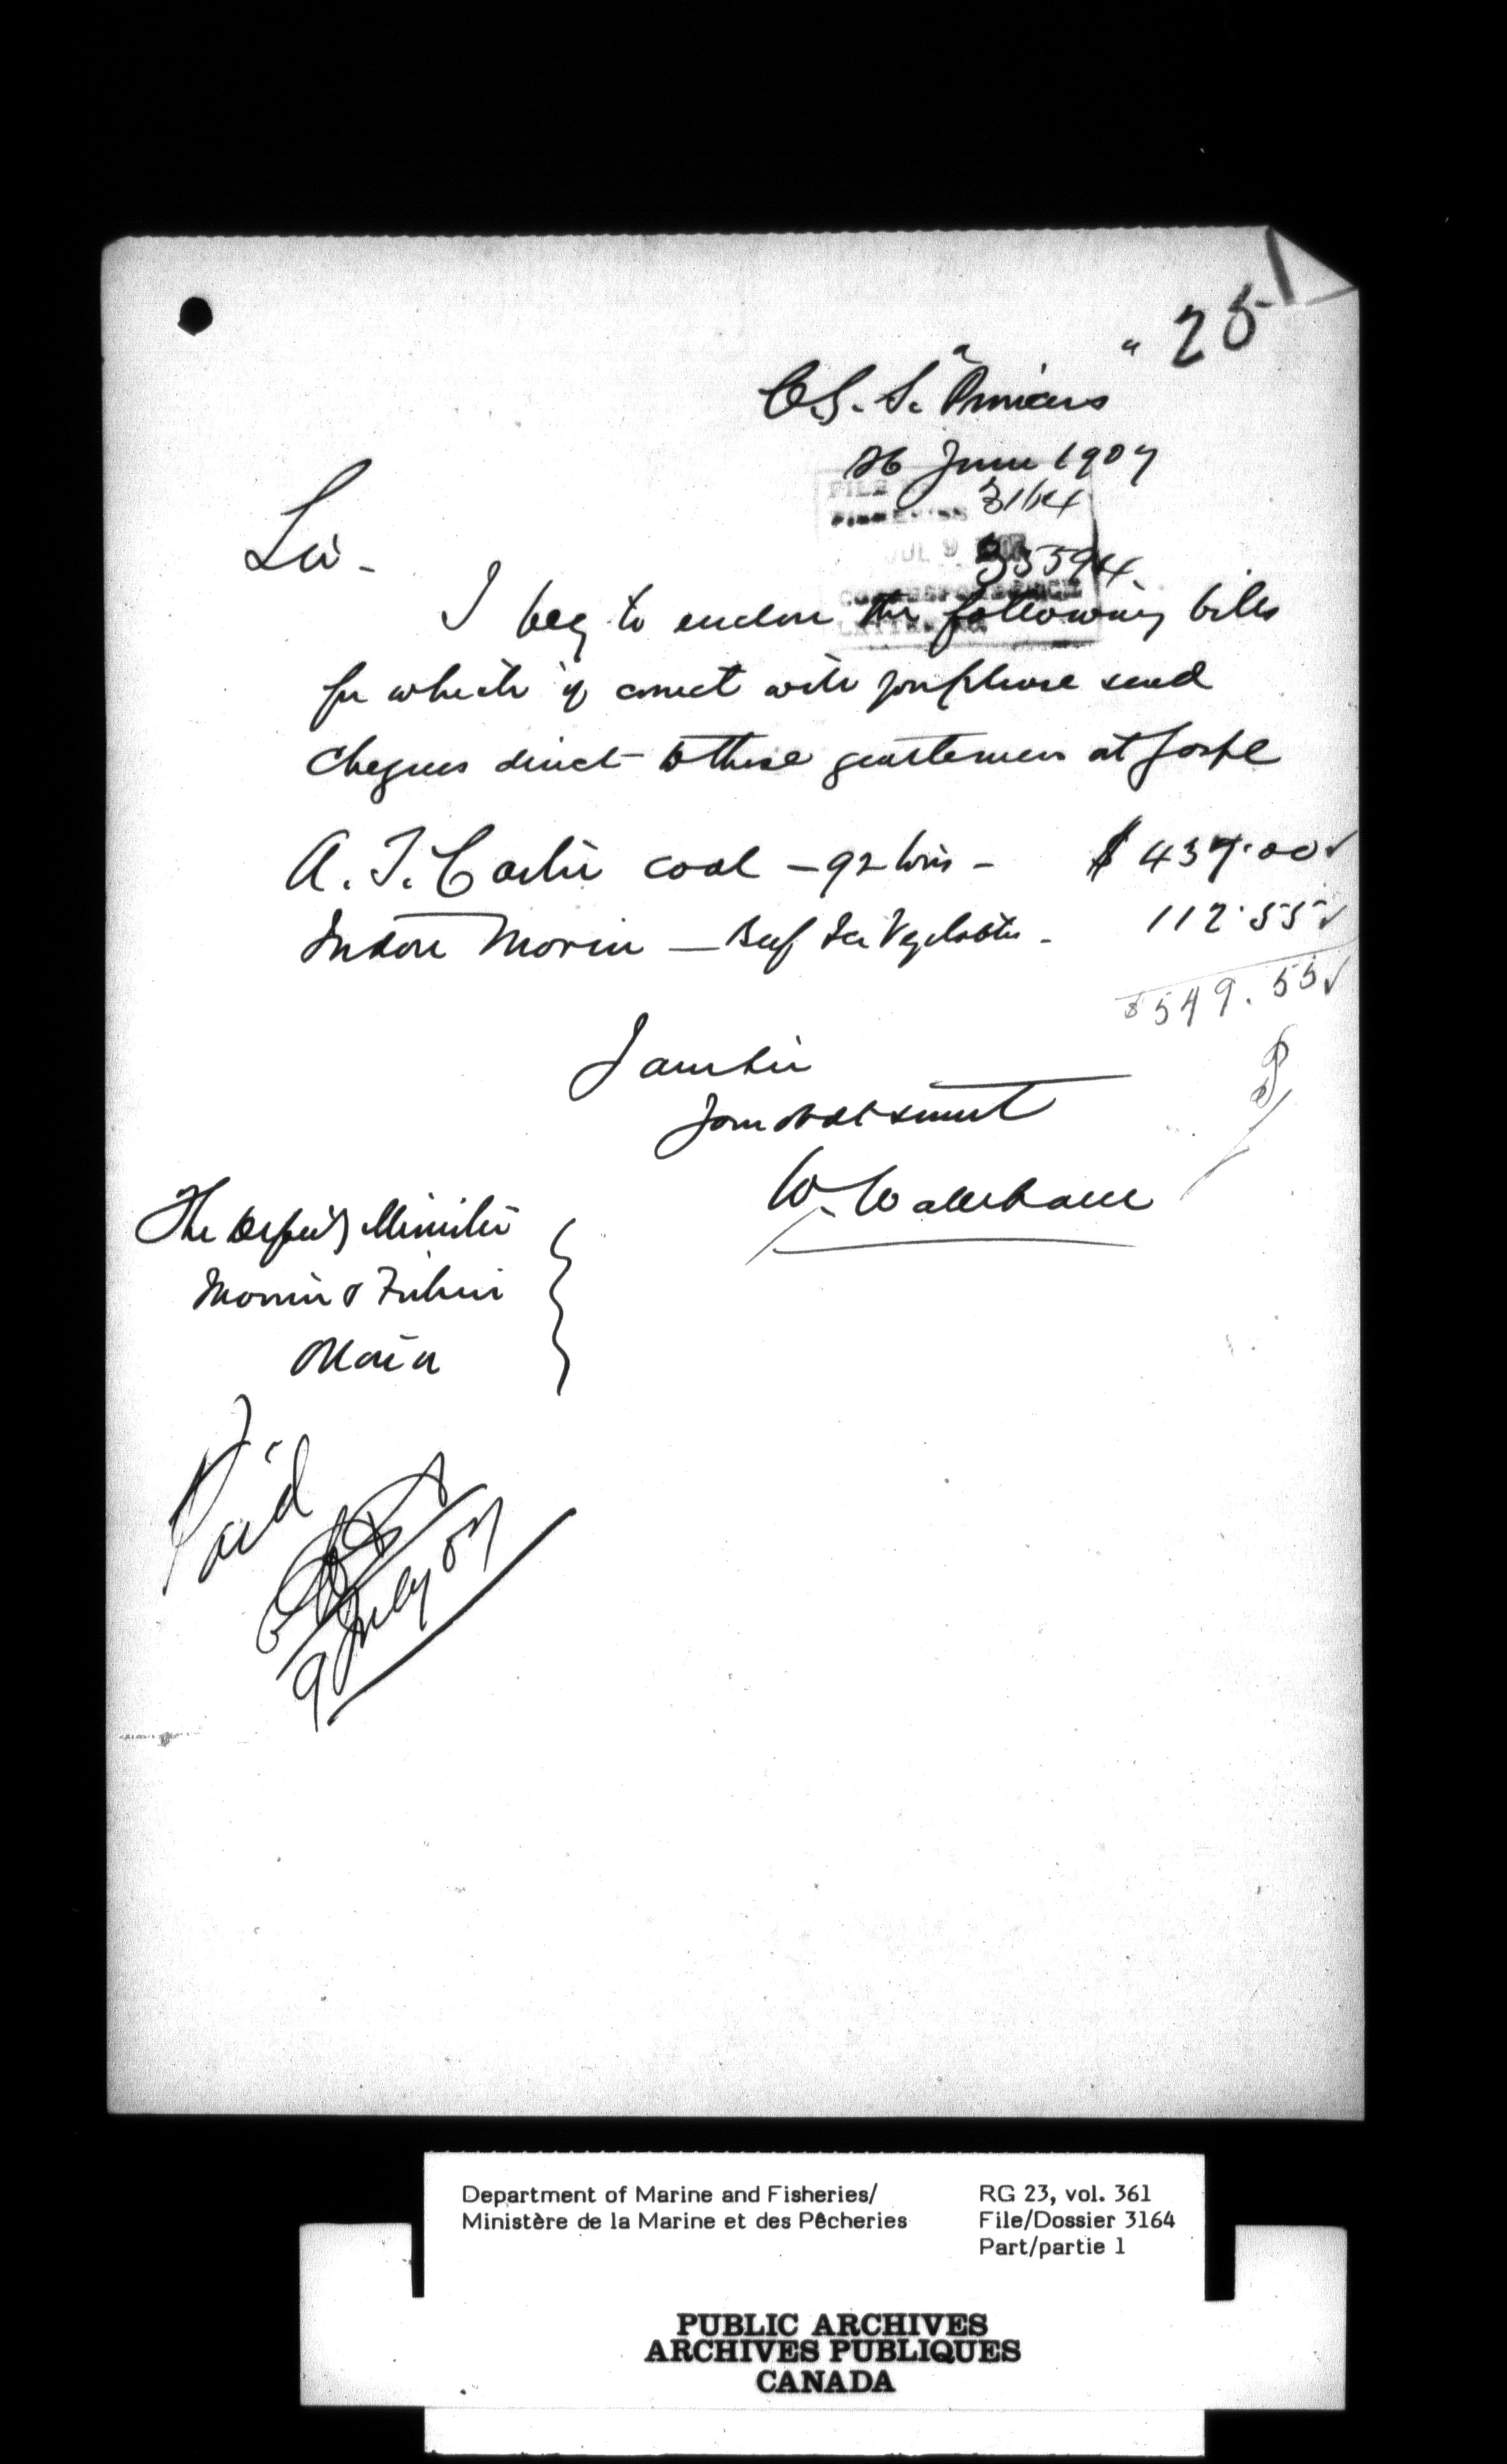 25
C.G.S. "Princess"
26 June 1907
FILE
FISHERIES 3164
JUL 9 1907
33594
CORRESPONDENCE
LETTER NO.
Sir -
I beg to enclose the following bills
for which if correct will you please send
cheques direct to these gentlemen at Gaspe
A. T. Carter coal - 92 tons - $ 437.00
Isidore Morin - Beef Ice Vegetables - 112.55
$549.55
I am Sir
Your obdt servant
W. Wakeham
The Deputy Minister
Marine & Fisheries
Ottawa
Paid
9 July 07
Department of Marine and Fisheries/
Ministère de la Marine et des Pêcheries
RG 23, vol. 361
File/Dossier 3164
Part/partie 1
PUBLIC ARCHIVES
ARCHIVES PUBLIQUES
CANADA